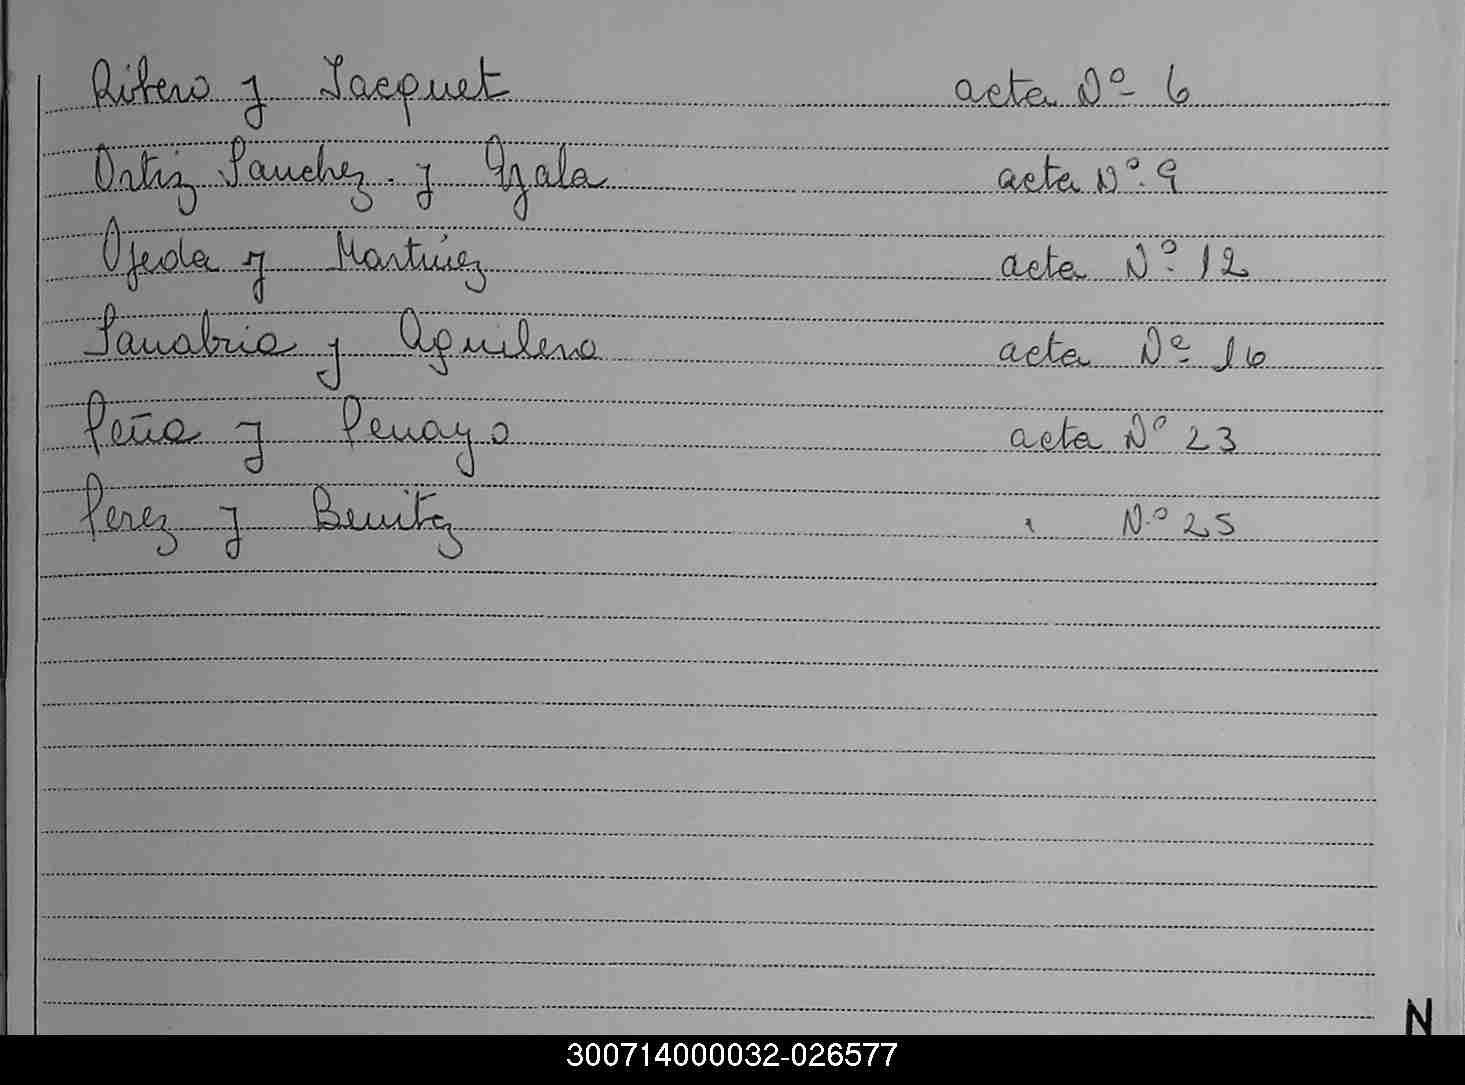 Ribero y Jacquet acta Nº 6
Ortiz Sanchez. y Ayala acta Nº. 9
Ojeda y Martinez acta Nº. 12
Sanabria y Aguilera acta Nº 16
Peña y Penayo acta Nº 23
Perez y Benitez " N.º 25
N
300714000032-026577